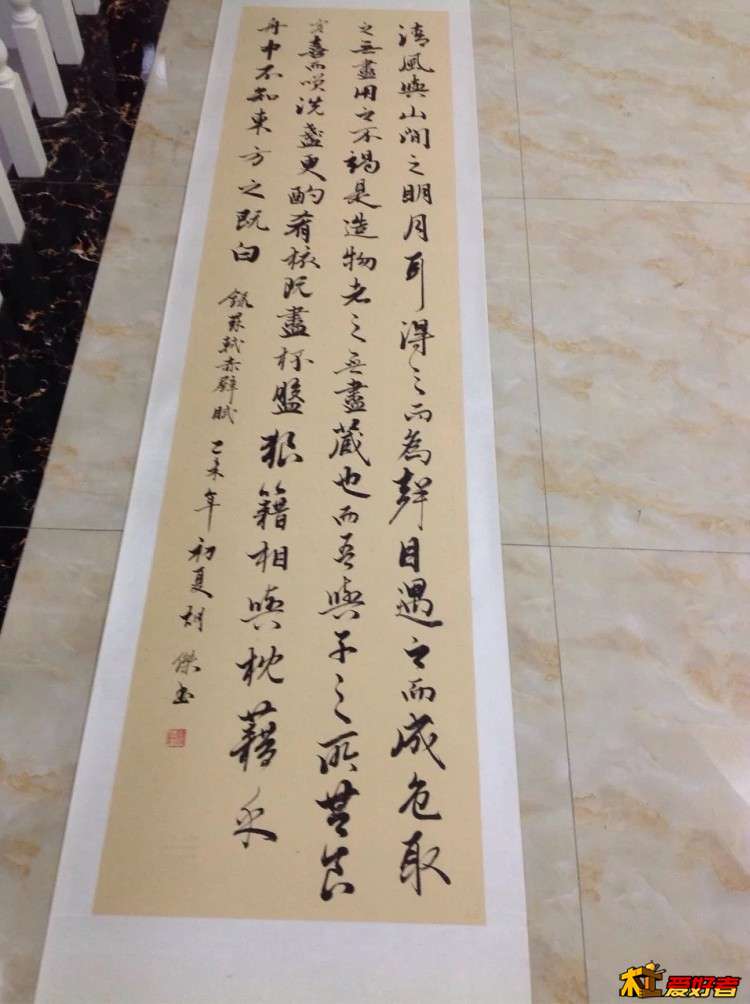 清風與山間之明月耳得之而為聲目遇之而成色取
之无盡用之不竭是造物者之无盡藏也而吾與子之所共食
客喜而笑洗盞更酌肴核既盡杯盤狼籍相與枕藉乎
舟中不知東方之既白 錄蘇軾赤壁賦 乙未年初夏胡傑书
木工爱好者